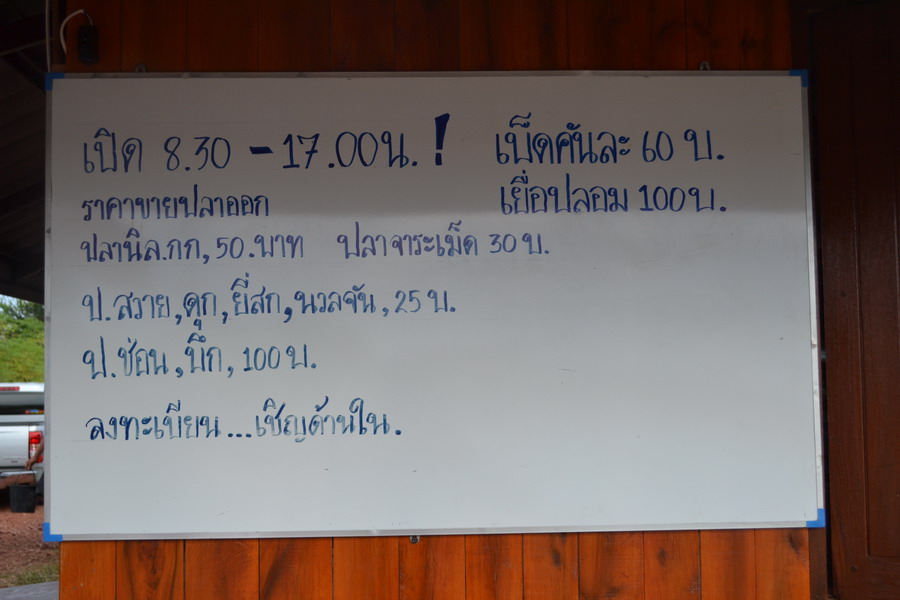 เปิด 8.30 - 17.00น. !
เบ็ดคันละ 60 บ.
เยื่อปลอม 100 บ.
ราคาขายปลาออก
ปลานิล.กก, 50.บาท ปลาจาระเม็ด 30 บ.
ป.สวาย, ดุก, ยี่สก, นวลจัน, 25 บ.
ป.ช่อน, บึก, 100 บ.
ลงทะเบียน...เชิญด้านใน.